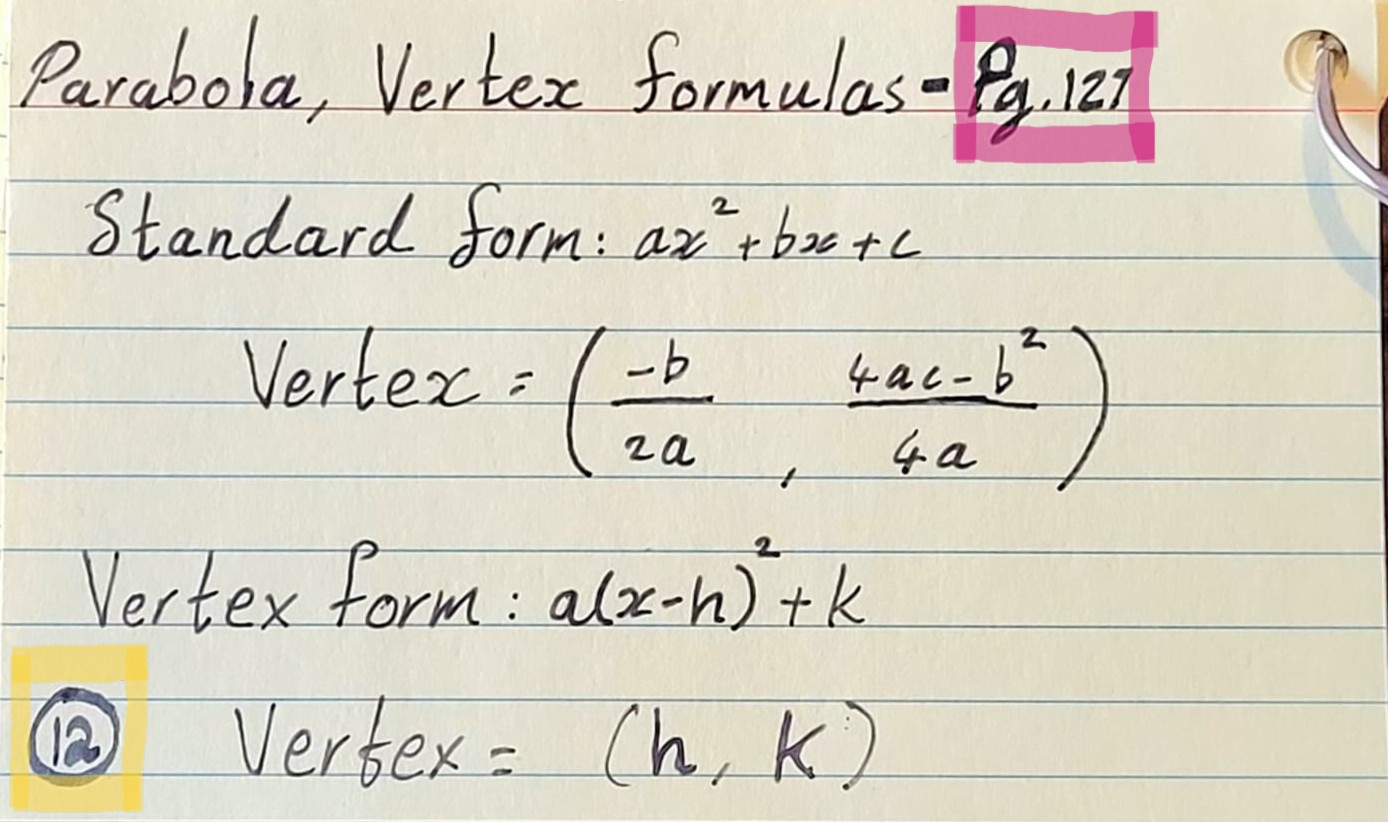 Parabola, Vertex formulas - Pg. 127
Standard form: ax² + bx + c
Vertex = (-b/2a, 4ac-b²/4a)
Vertex form: a(x-h)² + k
12 Vertex = (h, k)